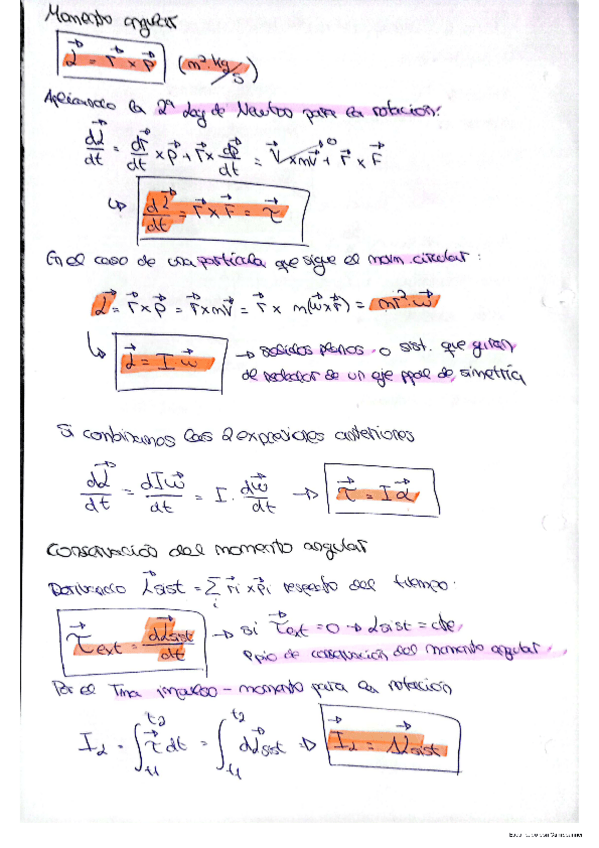 Momento angular
L⃗ = r⃗ × p⃗ (m²·kg/s)
Aplicando la 2ª Ley de Newton para la rotación:
dL⃗/dt = dr⃗/dt × p⃗ + r⃗ × dp⃗/dt = v⃗ × mv⃗ + r⃗ × F⃗
↳ dL⃗/dt = r⃗ × F⃗ = τ⃗
En el caso de una partícula que sigue el movm. circular:
L⃗ = r⃗ × p⃗ = r⃗ × mv⃗ = r⃗ × m(ω⃗ × r⃗) = mr²·ω⃗
↳ L⃗ = I·ω⃗ → sólidos planos o sist. que giran
alrededor de un eje ppal de simetría
Si combinamos las 2 expresiones anteriores
dL⃗/dt = dIω⃗/dt = I·dω⃗/dt → τ⃗ = Iα⃗
Conservación del momento angular
Derivando L⃗sist = Σi r⃗i × p⃗i respecto del tiempo.
τ⃗ext = dL⃗sist/dt → si τ⃗ext = 0 → Lsist = cte,
ppio de conservación del momento angular.
Por el Tma impulso - momento para la rotación
IL = ∫t1 t2 τ⃗ dt = ∫t1 t2 dL⃗sist ⇒ I⃗L = ΔL⃗sist